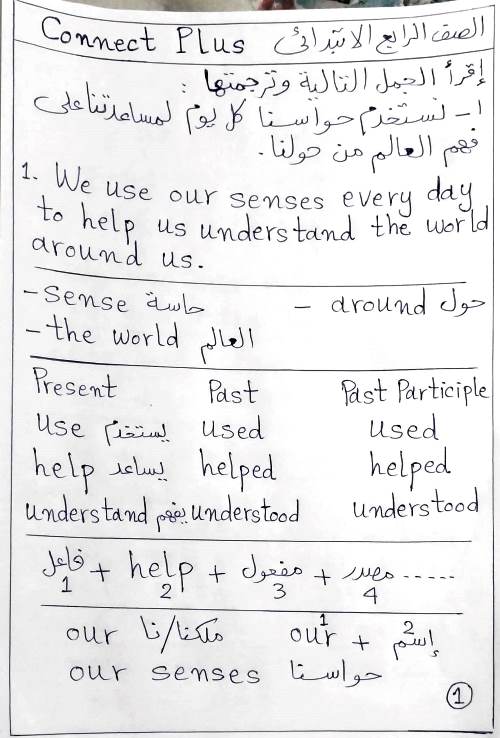 Connect Plus الصف الرابع الابتدائى
إقرأ الجمل التالية وترجمتها :
١ - نستخدم حواسنا كل يوم لمساعدتنا على
فهم العالم من حولنا.
1. We use our senses every day
to help us understand the world
around us.
- sense حاسة - around حول
- the world العالم
Present Past Past Participle
use يستخدم used used
help يساعد helped helped
understand يفهم understood understood
فاعل + help + مفعول + مصدر ......
1 2 3 4
our ملكنا/نا our + إسم
1 2
our senses حواسنا
1